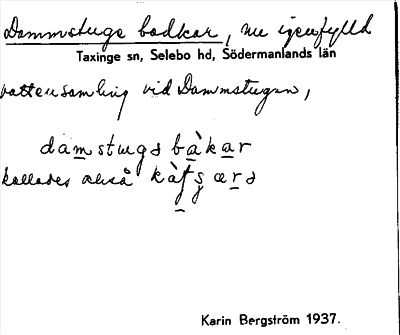 Dammstuge badkar, nu igenfylld
Taxinge sn, Selebo hd, Södermanlands län
vattensamling vid Dammstugan,
damstugɘ bàkar
kallades också
Karin Bergström 1937.